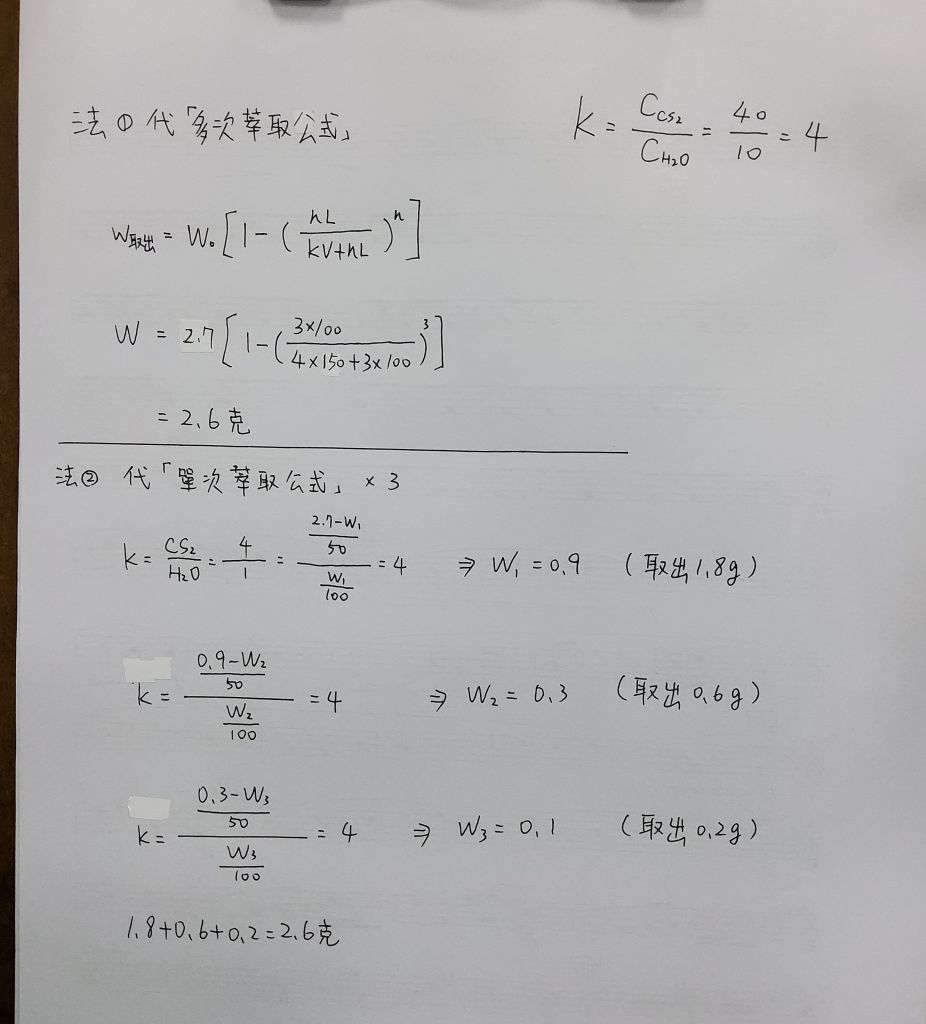 法① 代「多次萃取公式」
k = C_CS₂/C_H₂O = 40/10 = 4
W取出 = W₀[1-(nL/(kV+nL))ⁿ]
W = 2.7[1-((3×100)/(4×150+3×100))³]
= 2.6克
法② 代「單次萃取公式」×3
k = CS₂/H₂O = 4/1 = ((2.7-W₁)/50)/(W₁/100) = 4 ⇒ W₁ = 0.9 (取出1.8g)
k = ((0.9-W₂)/50)/(W₂/100) = 4 ⇒ W₂ = 0.3 (取出0.6g)
k = ((0.3-W₃)/50)/(W₃/100) = 4 ⇒ W₃ = 0.1 (取出0.2g)
1.8+0.6+0.2=2.6克